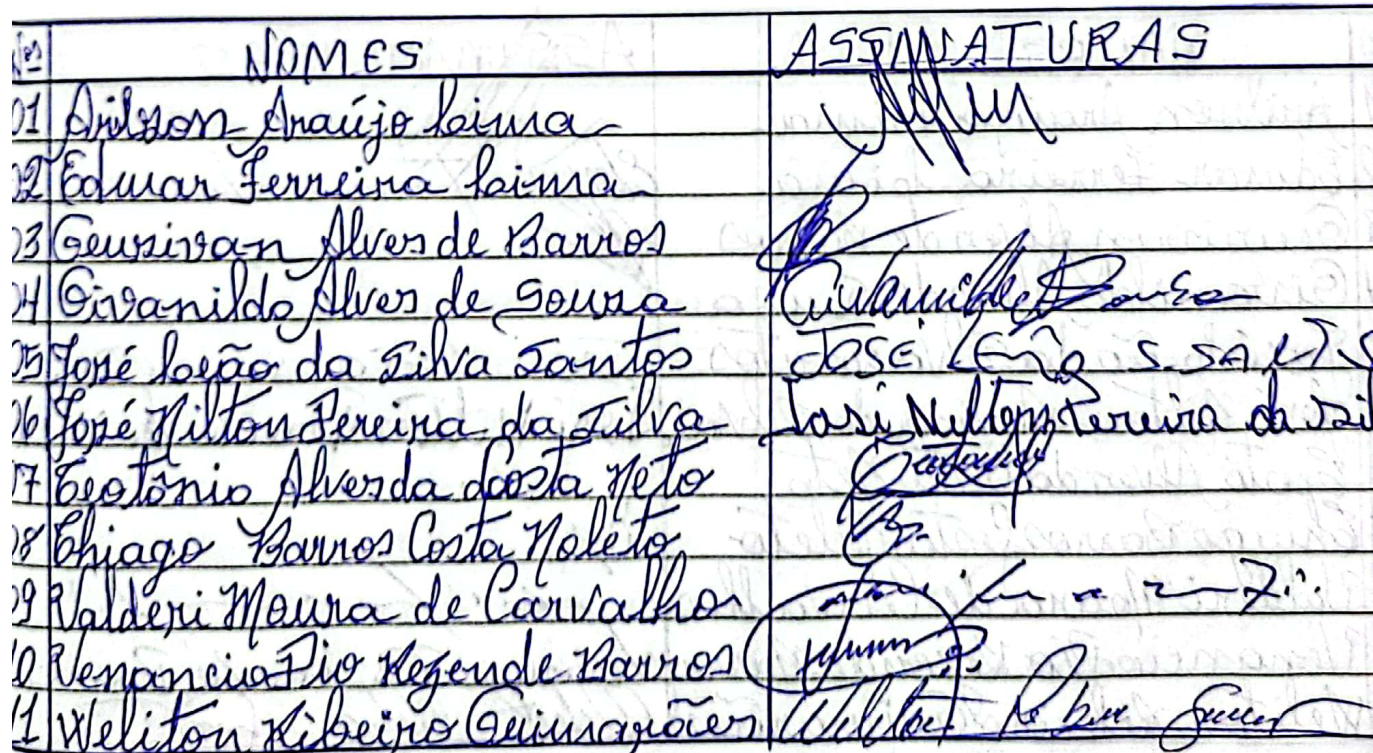 Nº NOMES ASSINATURAS
01 Arilson Araújo Lima
02 Edmar Ferreira Lima
03 Geurivan Alves de Barros
04 Givanildo Alves de Souza
05 José Leão da Silva Santos JOSE LEÃO S. SANTOS
06 José Nilton Pereira da Silva José Nylton Pereira da Sil
07 Teotônio Alves da Costa Neto
08 Thiago Barros Costa Noleto
09 Valderi Moura de Carvalho
10 Venancio Pio Rezende Barros
11 Weliton Ribeiro Guimarães Weliton